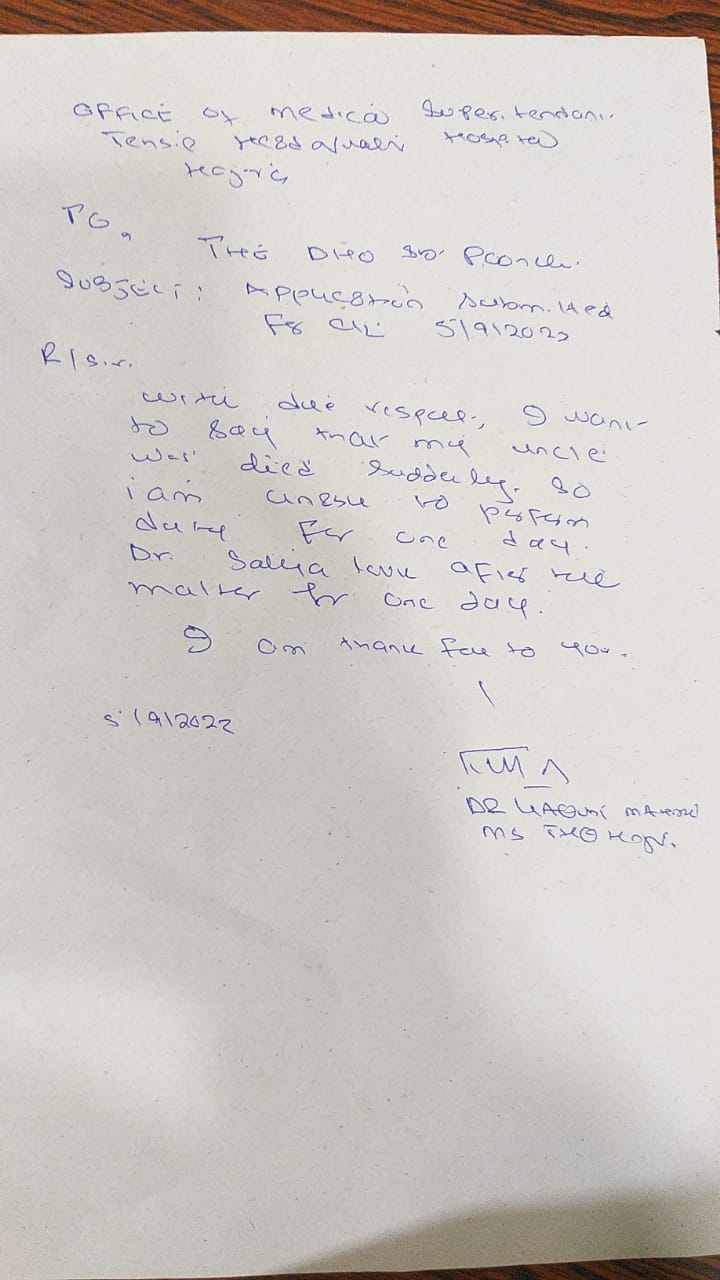 OFFICE OF Medical Super.tendant
Tehsil Headquater Hospital
Hajira
TO,
THE DHO Poonch.
Subject: Application Submitted
For C/L 5/9/2022
R/Sir.
with due respect, I want
to say that my uncle
was died suddenly. so
i am unable to perform
duty for one day.
Dr. Salija look after the
matter for one day.
I am thank full to you.
5/9/2022
DR MAHMOOD
MS THQ Hajira.